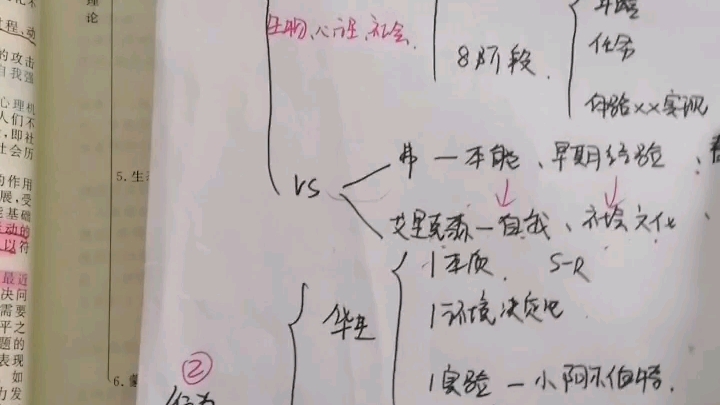 理
论
程、动
的攻击
自我强
心理机
人们不
，即社
社会历
的作用
展，受
基础
动的
以符
最近
决问
需要
平之
题的
表现
如
力发
5.生
6.蒙
生物、心理、社会
8阶段
年龄
任务
体验××实现
VS
弗一本能、早期经验、
艾里克森一自我、社会文化、
华生
1本质 S-R
1环境决定论
1实验一小阿尔伯特.
②
行为